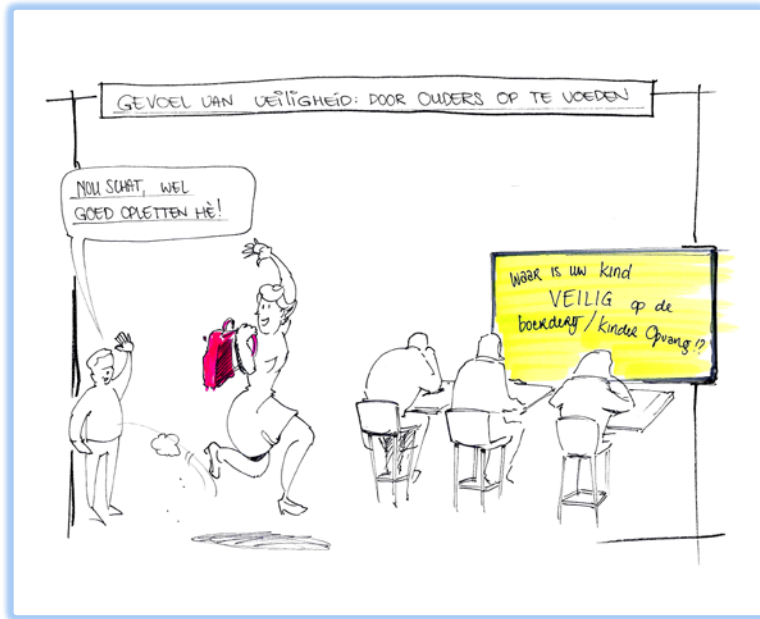 GEVOEL VAN VEILIGHEID: DOOR OUDERS OP TE VOEDEN
NOU SCHAT, WEL
GOED OPLETTEN HÈ!
WAAR IS UW kind
VEILIG op de
boerderij/kinder Opvang!?